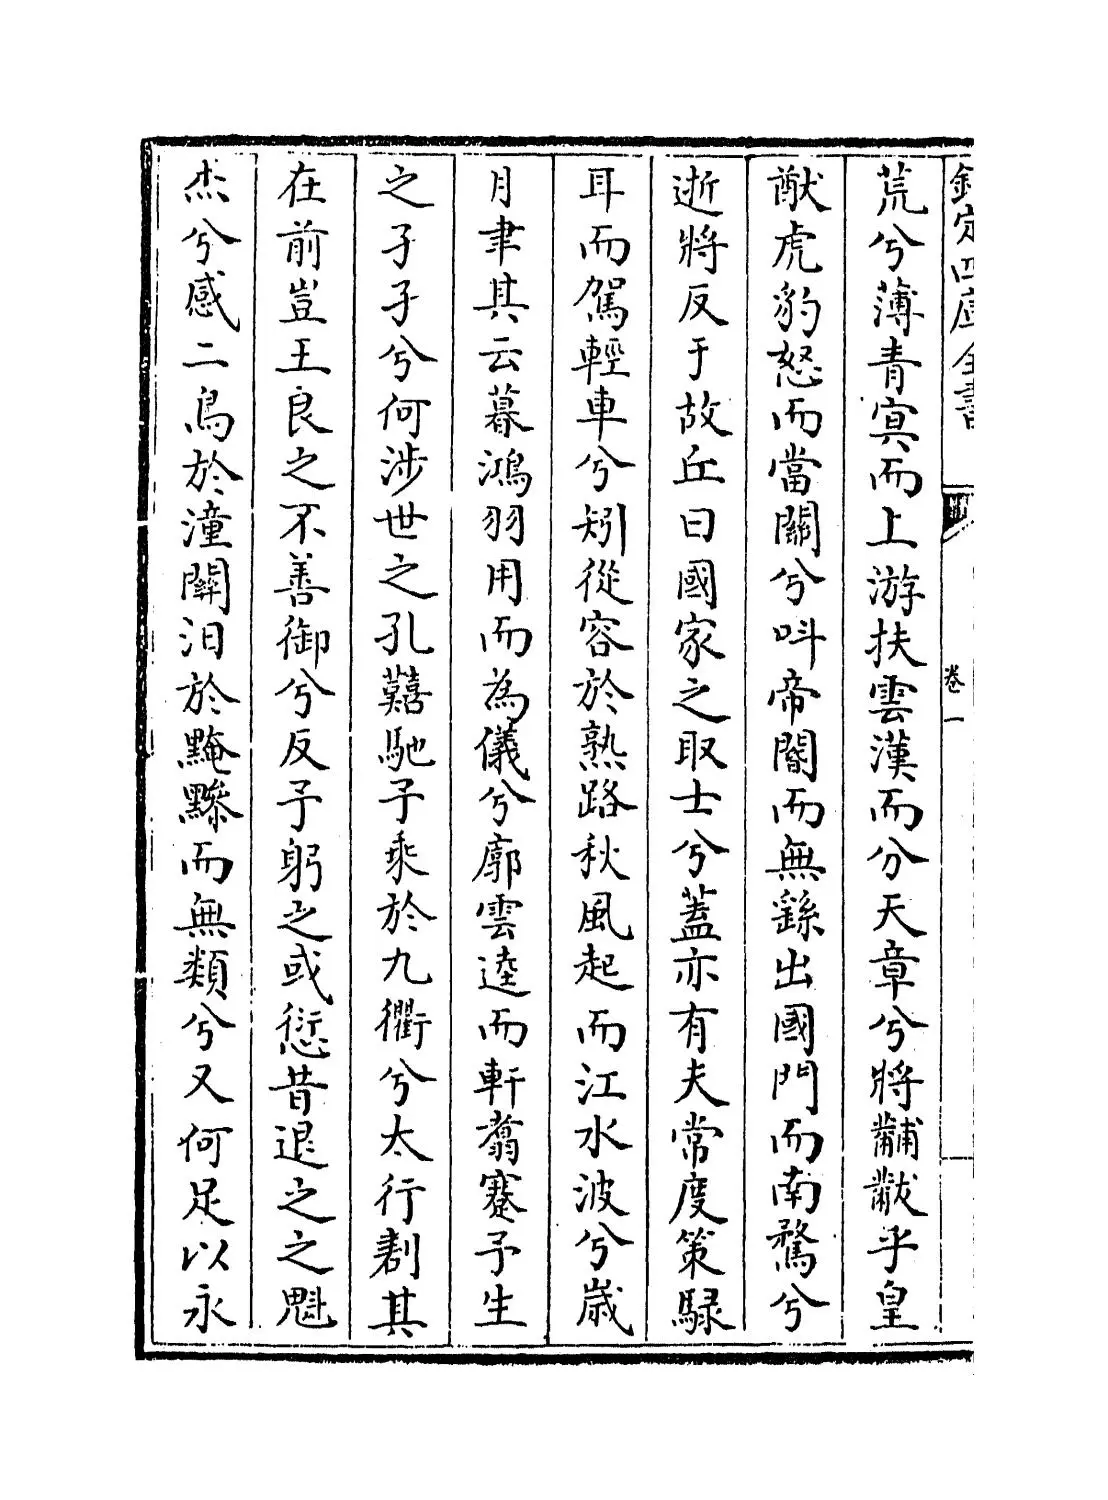 欽定四庫全書
卷一
荒兮薄青冥而上游扶雲漢而分天章兮將黼黻乎皇
猷虎豹怒而當關兮呌帝閽而無繇出國門而南騖兮
逝將反于故丘曰國家之取士兮蓋亦有夫常度策騄
耳而駕輕車兮矧從容於熟路秋風起而江水波兮歳
月聿其云暮鴻羽用而為儀兮廓雲逵而軒翥蹇予生
之孑孑兮何涉世之孔囏馳予乘於九衢兮太行劃其
在前豈王良之不善御兮反予躬之或愆昔退之之魁
杰兮感二鳥於潼關汨於黤黲而無類兮又何足以永